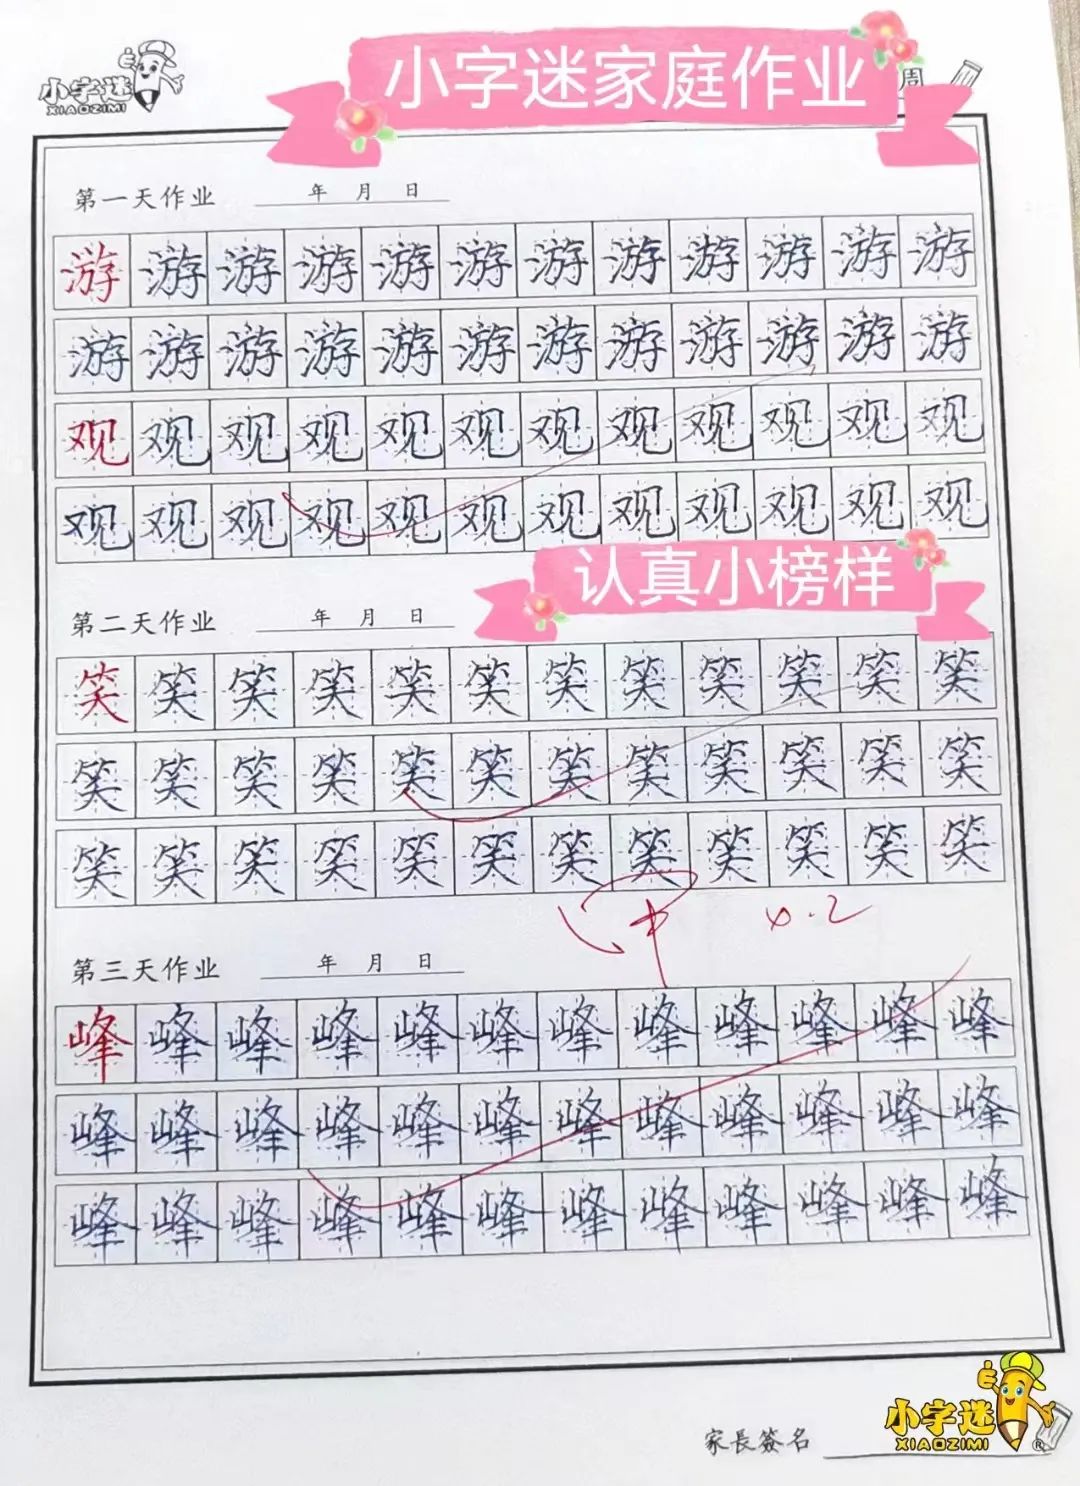 小字迷
XIAOZIMI
小字迷家庭作业
周
第一天作业 年 月 日
游游游游游游游游游游游游
游游游游游游游游游游游游
观观观观观观观观观观观观
观观观观观观观观观观观观
认真小榜样
第二天作业 年 月 日
笑笑笑笑笑笑笑笑笑笑笑笑
笑笑笑笑笑笑笑笑笑笑笑笑
笑笑笑笑笑笑笑笑笑笑笑笑
甲
第三天作业 年 月 日
峰峰峰峰峰峰峰峰峰峰峰峰
峰峰峰峰峰峰峰峰峰峰峰峰
峰峰峰峰峰峰峰峰峰峰峰峰
小字迷
XIAOZIMI®
家長簽名